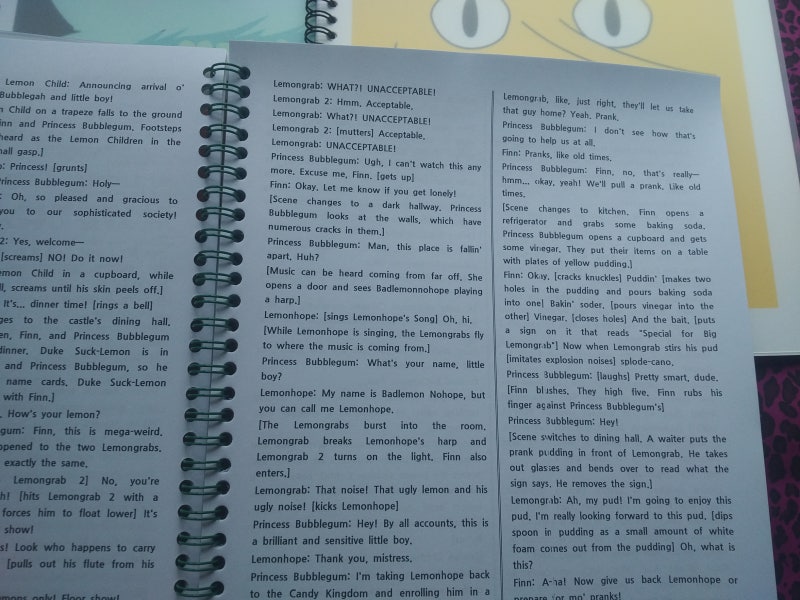 Lemon Child: Announcing arrival o'
Bubblegah and little boy!
Child on a trapeze falls to the ground
inn and Princess Bubblegum. Footsteps
heard as the Lemon Children in the
gasp.]
Princess! [grunts]
Princess Bubblegum: Holy—
: Oh, so pleased and gracious to
you to our sophisticated society!
2: Yes, welcome—
[screams] NO! Do it now!
emon Child in a cupboard, while
screams until his skin peels off.]
It's... dinner time! [rings a bell]
ges to the castle's dining hall.
en, Finn, and Princess Bubblegum
dinner. Duke Suck-Lemon is in
and Princess Bubblegum, so he
name cards. Duke Suck-Lemon
with Finn.]
. How's your lemon?
gum: Finn, this is mega-weird.
opened to the two Lemongrabs.
exactly the same.
Lemongrab 2] No, you're
h! [hits Lemongrab 2 with a
forces him to float lower] It's
show!
s! Look who happens to carry
[pulls out his flute from his
emons only! Floor show!
Lemongrab: WHAT?! UNACCEPTABLE!
Lemongrab 2: Hmm. Acceptable.
Lemongrab: What?! UNACCEPTABLE!
Lemongrab 2: [mutters] Acceptable.
Lemongrab: UNACCEPTABLE!
Princess Bubblegum: Ugh, I can't watch this any
more. Excuse me, Finn. [gets up]
Finn: Okay. Let me know if you get lonely!
[Scene changes to a dark hallway. Princess
Bubblegum looks at the walls, which have
numerous cracks in them.]
Princess Bubblegum: Man, this place is fallin'
apart, Huh?
[Music can be heard coming from far off. She
opens a door and sees Badlemonnohope playing
a harp.]
Lemonhope: [sings Lemonhope's Song] Oh, hi.
[While Lemonhope is singing, the Lemongrabs fly
to where the music is coming from.]
Princess Bubblegum: What's your name, little
boy?
Lemonhope: My name is Badlemon Nohope, but
you can call me Lemonhope.
[The Lemongrabs burst into the room.
Lemongrab breaks Lemonhope's harp and
Lemongrab 2 turns on the light. Finn also
enters.]
Lemongrab: That noise! That ugly lemon and his
ugly noise! [kicks Lemonhope]
Princess Bubblegum: Hey! By all accounts, this is
a brilliant and sensitive little boy.
Lemonhope: Thank you, mistress.
Princess Bubblegum: I'm taking Lemonhope back
to the Candy Kingdom and enrolling him in a
Lemongrab, like, just right, they'll let us take
that guy home? Yeah. Prank.
Princess Bubblegum: I don't see how that's
going to help us at all.
Finn: Pranks, like old times.
Princess Bubblegum: Finn, no, that's really—
hmm... okay, yeah! We'll pull a prank. Like old
times.
[Scene changes to kitchen. Finn opens a
refrigerator and grabs some baking soda.
Princess Bubblegum opens a cupboard and gets
some vinegar. They put their items on a table
with plates of yellow pudding.]
Finn: Okay. [cracks knuckles] Puddin' [makes two
holes in the pudding and pours baking soda
into one] Bakin' soder. [pours vinegar into the
other] Vinegar. [closes holes] And the bait. [puts
a sign on it that reads "Special for Big
Lemongrab"] Now when Lemongrab stirs his pud
[imitates explosion noises] splode-cano.
Princess Bubblegum: [laughs] Pretty smart, dude.
[Finn blushes. They high five. Finn rubs his
finger against Princess Bubblegum's]
Princess Bubblegum: Hey!
[Scene switches to dining hall. A waiter puts the
prank pudding in front of Lemongrab. He takes
out glasses and bends over to read what the
sign says. He removes the sign.]
Lemongrab: Ah, my pud! I'm going to enjoy this
pud. I'm really looking forward to this pud. [dips
spoon in pudding as a small amount of white
foam comes out from the pudding] Oh, what is
this?
Finn: A-ha! Now give us back Lemonhope or
prepare for mo' pranks!